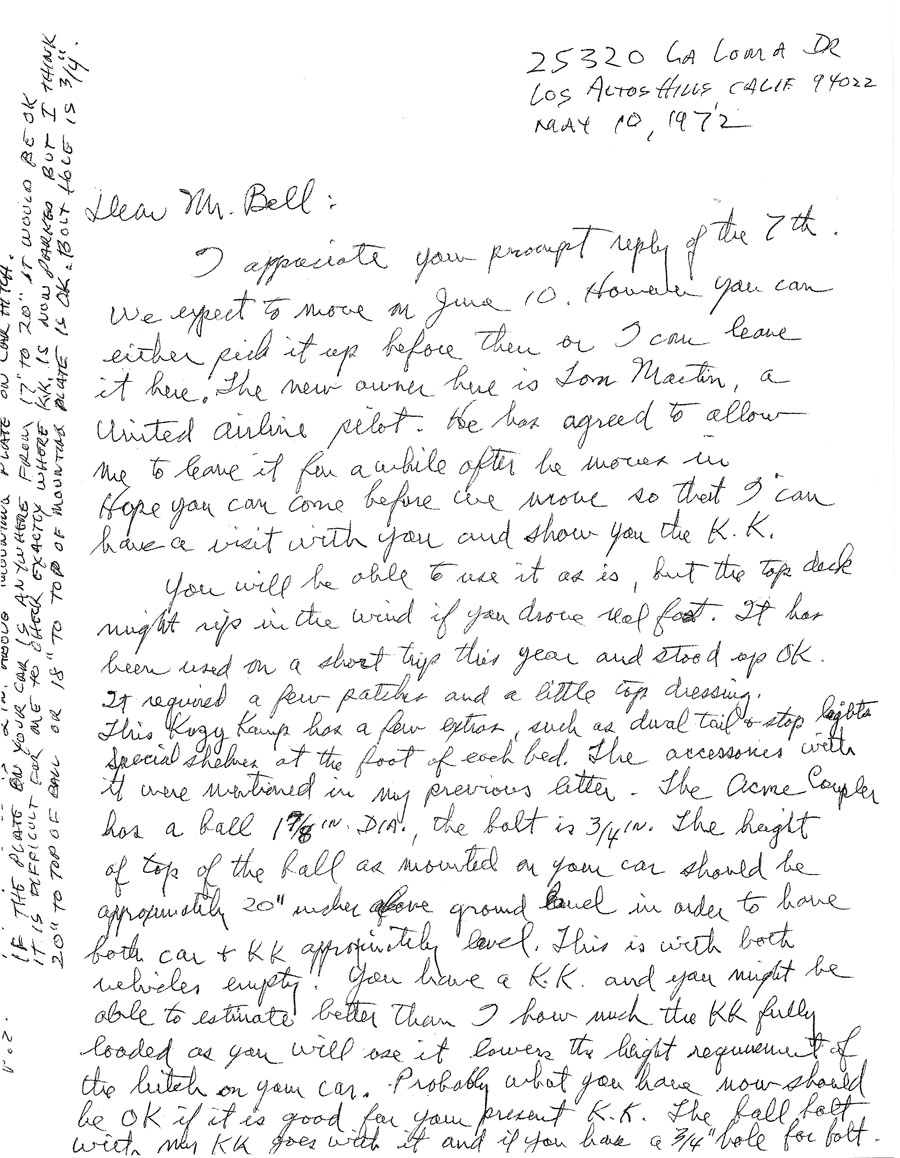 25320 LA LOMA DR
LOS ALTOS HILLS, CALIF 94022
MAY 10, 1972
Dear Mr. Bell:
I appreciate your prompt reply of the 7th.
We expect to move on June 10. However you can
either pick it up before then or I can leave
it here. The new owner here is Tom Martin, a
United airline pilot. He has agreed to allow
me to leave it for a while after he moves in
Hope you can come before we move so that I can
have a visit with you and show you the K.K.
You will be able to use it as is, but the top deck
might rip in the wind if you drove real fast. It has
been used on a short trip this year and stood up OK.
It required a few patches and a little top dressing.
This Kozy Kamp has a few extras, such as dual tail & stop lights
special shelves at the foot of each bed. The accessories with
it were mentioned in my previous letter. The Acme Coupler
has a ball 1 7/8 IN. DIA., the bolt is 3/4 IN. The height
of top of the ball as mounted on your car should be
approximately 20" inches above ground level in order to have
both car & KK approximately level. This is with both
vehicles empty. You have a K.K. and you might be
able to estimate better than I how much the KK fully
loaded as you will use it lowers the height requirement of
the hitch on your car. Probably what you have now should
be OK if it is good for your present K.K. The ball bolt
with my KK goes with it and if you have a 3/4" hole for bolt.
2 IN. ABOVE MOUNTING PLATE ON CAR HITCH.
IF THE PLATE ON YOUR CAR IS ANYWHERE FROM 17" TO 20" IT WOULD BE OK
IT IS DIFFICULT FOR ME TO CHECK EXACTLY WHERE K.K. IS NOW PARKED BUT I THINK
20" TO TOP OF BALL OR 18" TO TOP OF MOUNTING PLATE IS OK. BOLT HOLE IS 3/4".